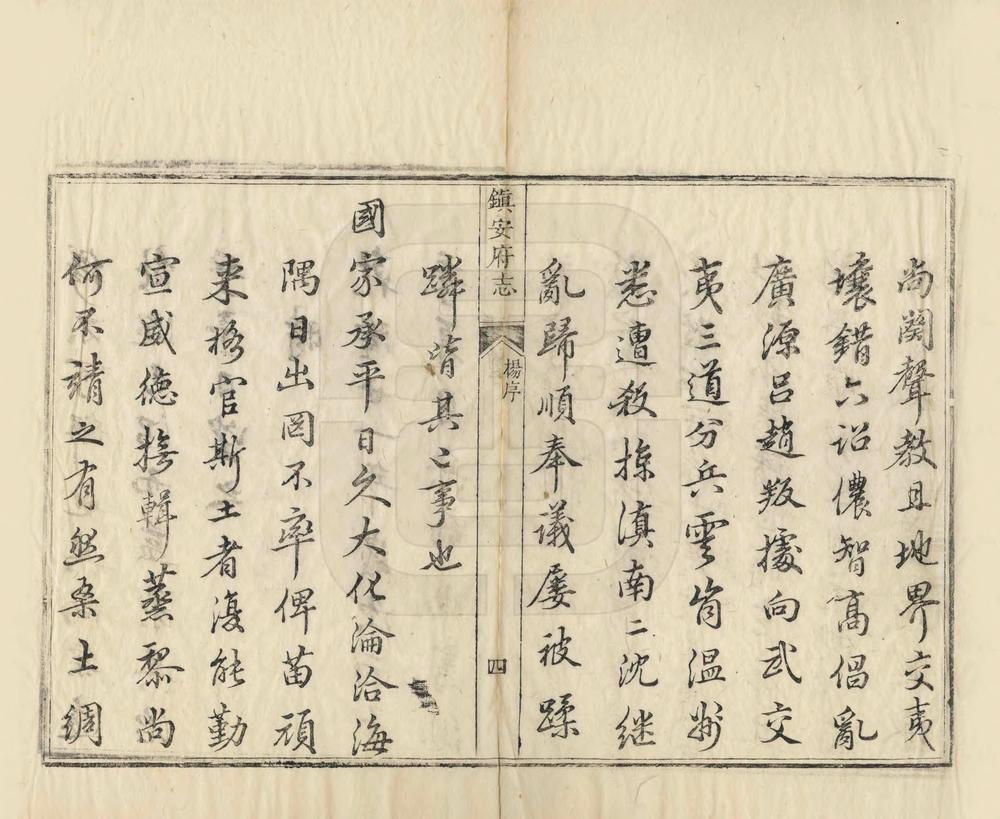 尚闕聲教且地界交夷
壤錯六詔儂智高倡亂
廣源呂趙叛據向武交
夷三道分兵雲肯温州
悉遭殺掠滇南二沈继
亂歸順奉議屡被蹂
鎮安府志
楊序
四
蹸皆其〻事也
國家承平日久大化淪洽海
隅日出罔不率俾苗頑
来格官斯土者復能勤
宣威德撫輯蒸黎尚
何不靖之有然桑土綢